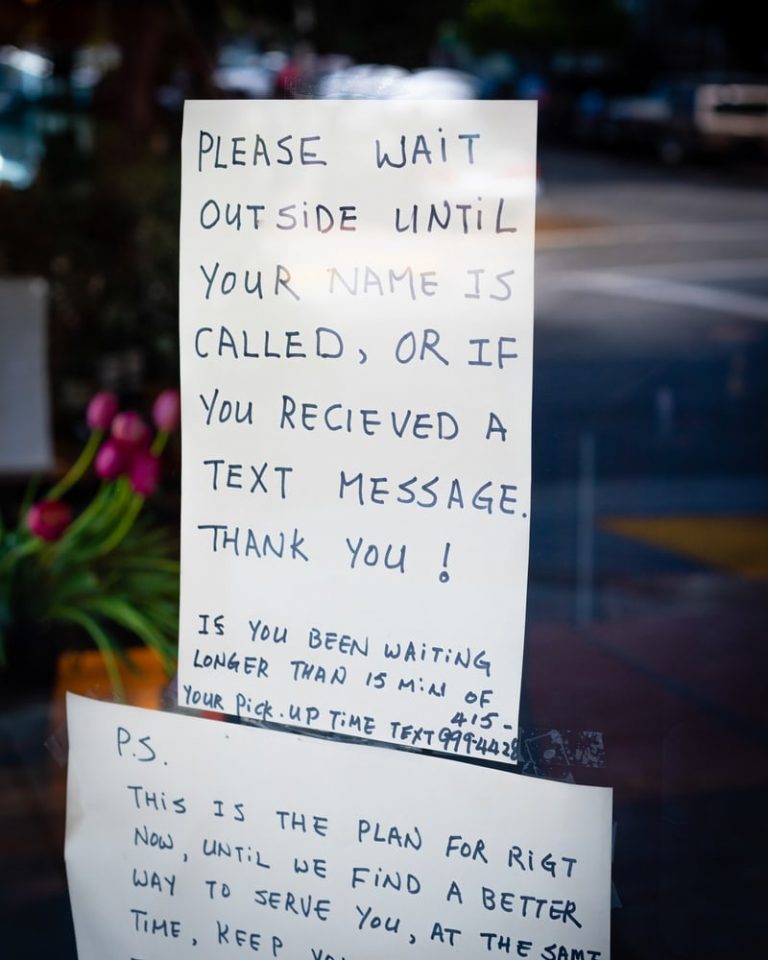 PLEASE WAIT
OUTSIDE UNTIL
YOUR NAME IS
CALLED, OR IF
YOU RECIEVED A
TEXT MESSAGE.
THANK YOU !
IS YOU BEEN WAITING
LONGER THAN 15 MIN OF
YOUR PICK-UP TIME TEXT 415-
999-4428
P.S.
THIS IS THE PLAN FOR RIGT
NOW, UNTIL WE FIND A BETTER
WAY TO SERVE YOU, AT THE SAMT
TIME, KEEP